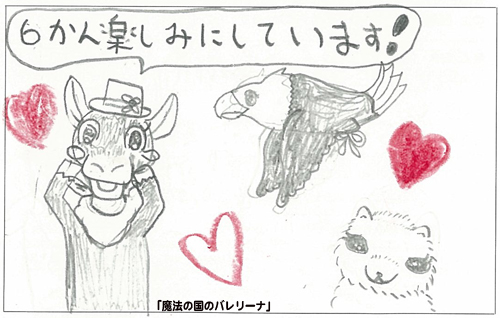 6かん楽しみにしています!
「魔法の国のバレリーナ」